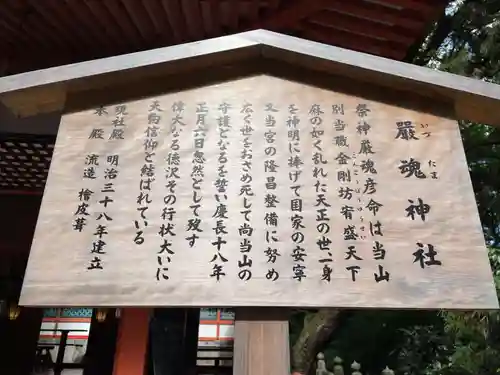 嚴魂神社
いづ たま
祭神厳魂彦命は当山
別当職金剛坊宥盛天下
こんごうぼうゆうせい
麻の如く乱れた天正の世、一身
を神明に捧げて国家の安寧
又当宮の隆昌整備に努め
広く世をおさめ死して尚当山の
守護となるを誓い慶長十八年
正月六日忽然として殁す
偉大なる徳沢その行状大いに
天駒信仰と結ばれている
現社殿 明治三十八年建立
本殿 流造 檜皮葺